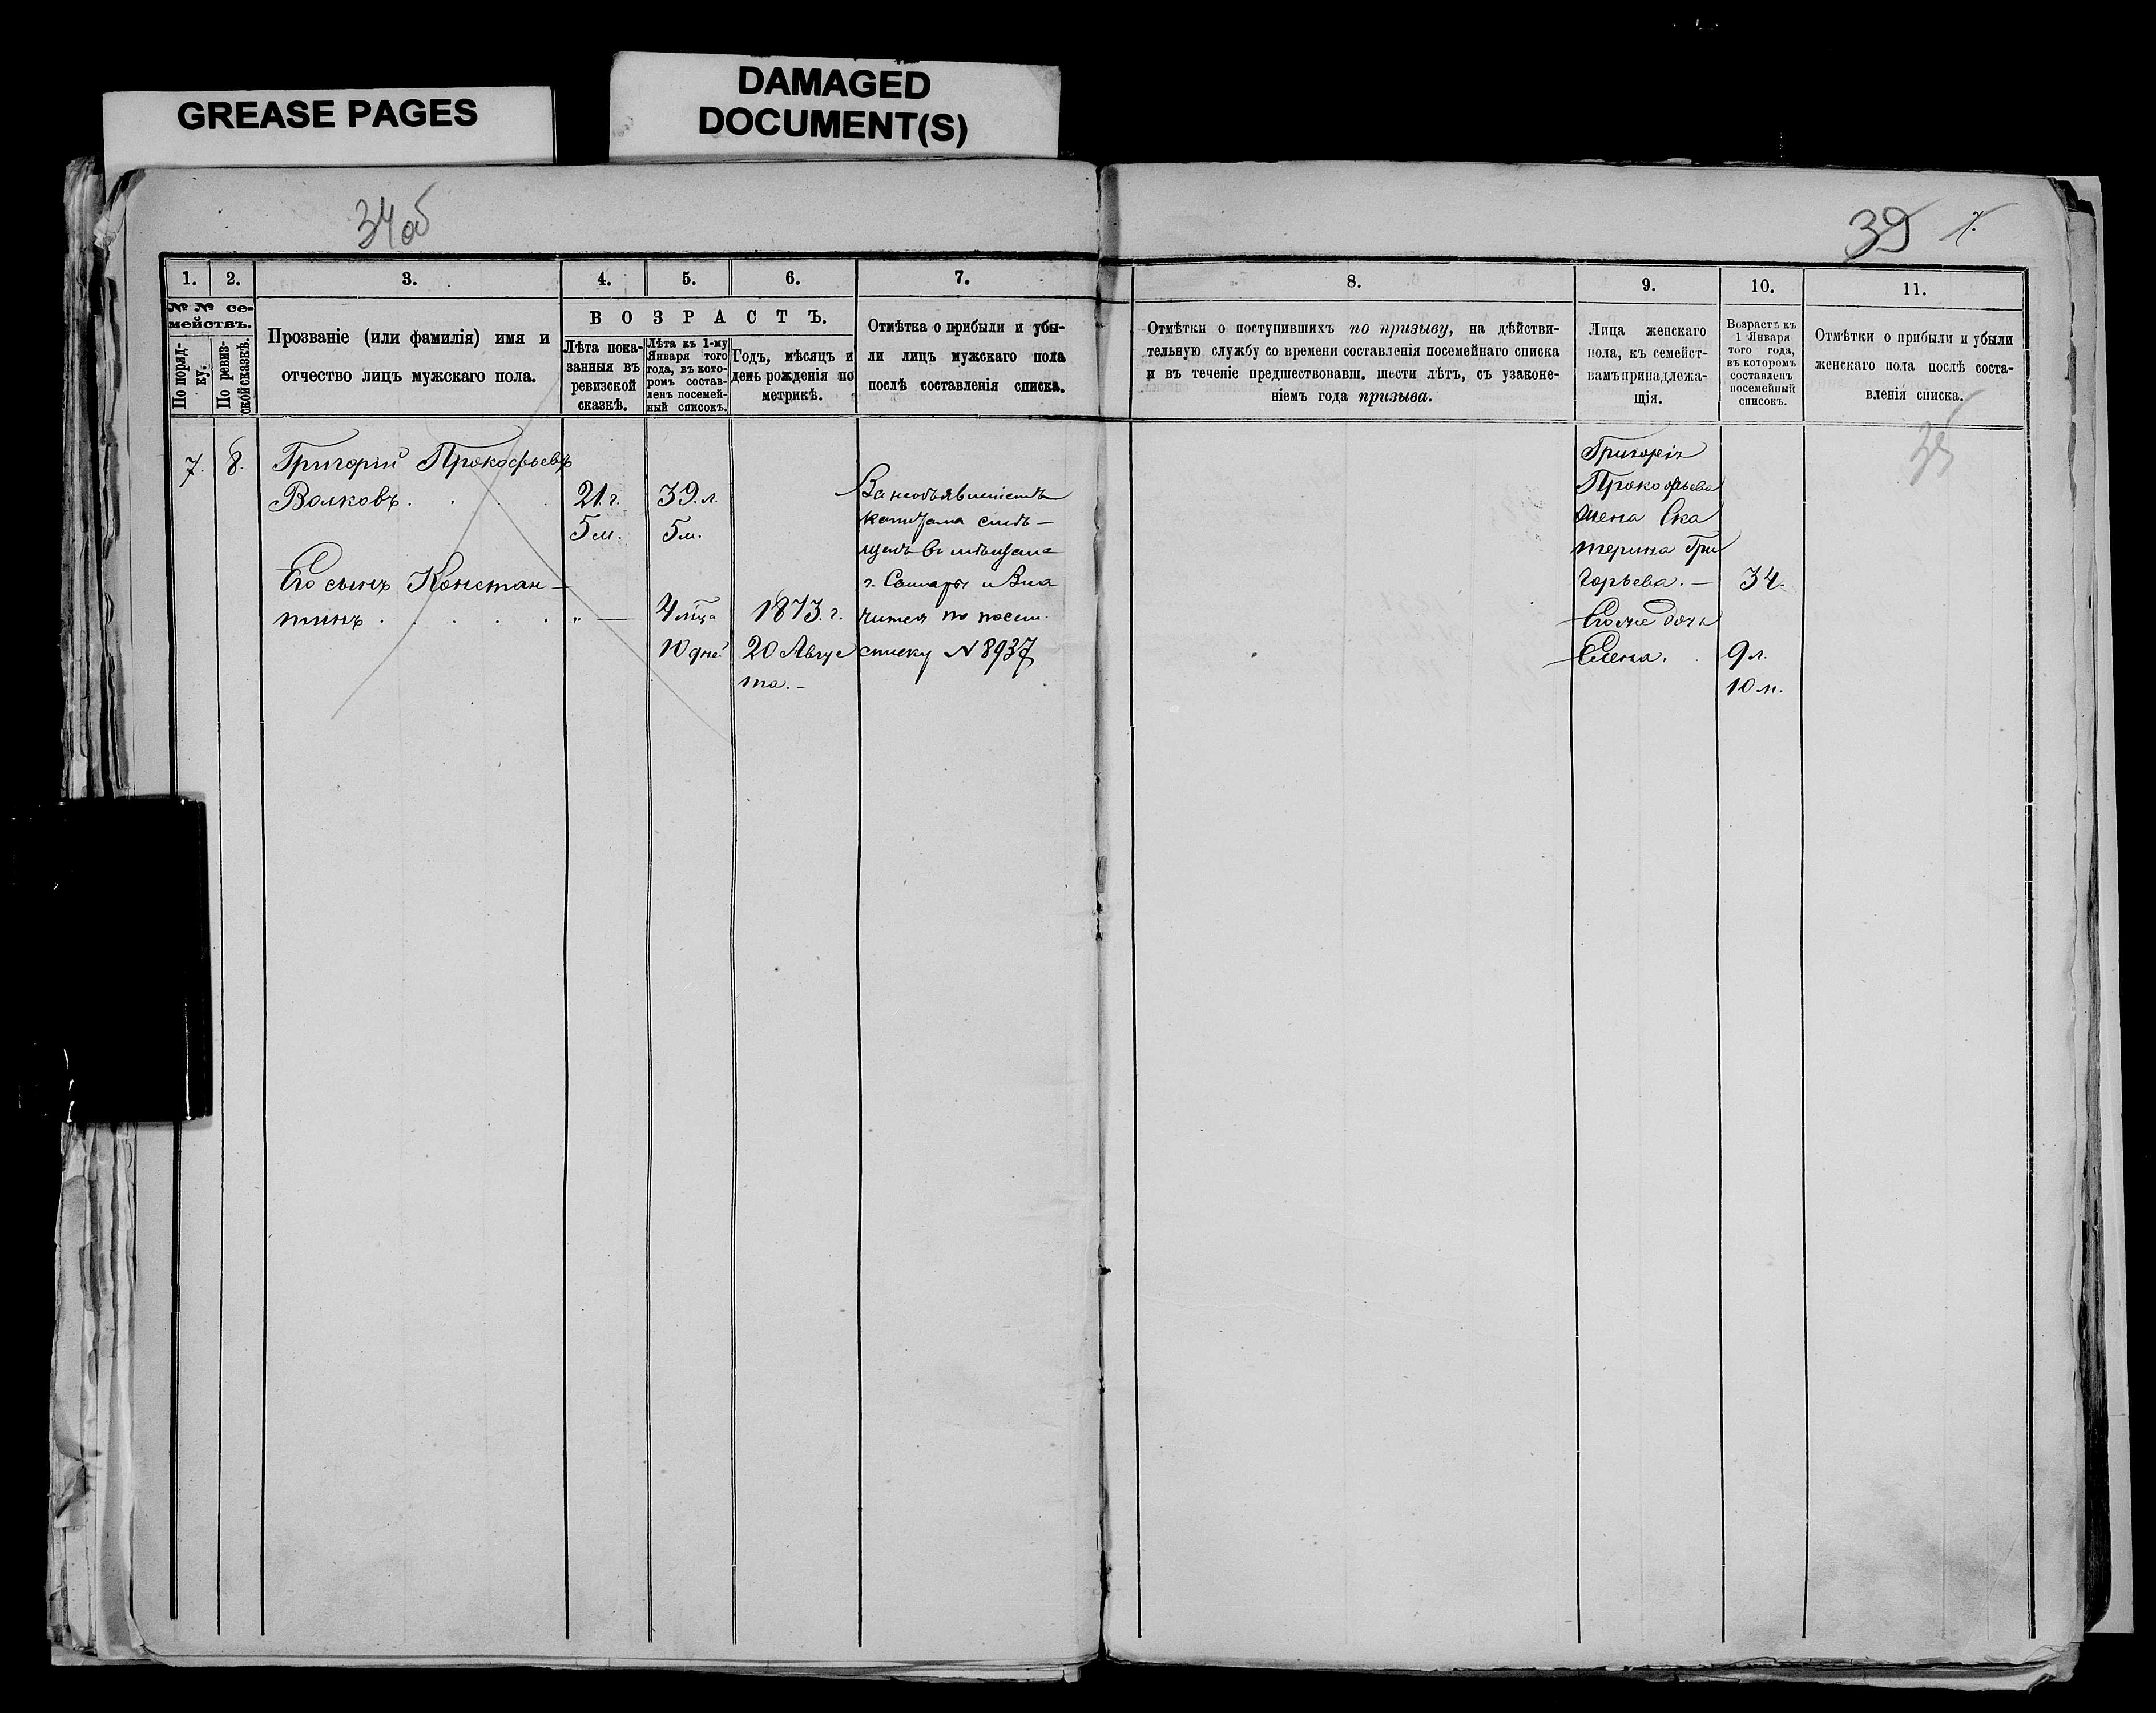 GREASE PAGES
DAMAGED
DOCUMENT(S)
34 об
39
1.
2.
3.
4.
5.
6.
7.
№ № се-
мействъ.
По поряд-
ку.
По ревиз-
ской сказкѣ.
Прозваніе (или фамилія) имя и
отчество лицъ мужскаго пола.
ВОЗРАСТЪ.
Лѣта пока-
занныя въ
ревизской
сказкѣ.
Лѣта къ 1-му
Января того
года, въ кото-
ромъ состав-
ленъ посемей-
ный списокъ.
Годъ, мѣсяцъ и
день рожденія по
метрикѣ.
Отмѣтка о прибыли и убы-
ли лицъ мужскаго пола
послѣ составленія списка.
7.
8.
Григорій Прокофьевъ
Волковъ
21 г.
5 м.
39 л.
5 м.
Его сынъ Констан-
тинъ
" —
4 мца
10 дне
1873 г.
20 Авгус
та. –
г. Самары и
чится по посем.
списку N 8937
8.
9.
10.
11.
Отмѣтки о поступившихъ по призыву, на дѣйстви-
тельную службу со времени составленія посемейнаго списка
и въ теченіе предшествовавш. шести лѣтъ, съ узаконе-
ніемъ года призыва.
Лица женскаго
пола, къ семейст-
вамъ принадлежа-
щія.
Возрастъ къ
1 Января
того года,
въ которомъ
составленъ
посемейный
списокъ.
Отмѣтки о прибыли и убыли
женскаго пола послѣ соста-
вленія списка.
35
Григорія
Прокофьева
жена Ека
терина Гри
горьева. —
34.
Его же дочь
Елена.
9 л.
10 м.